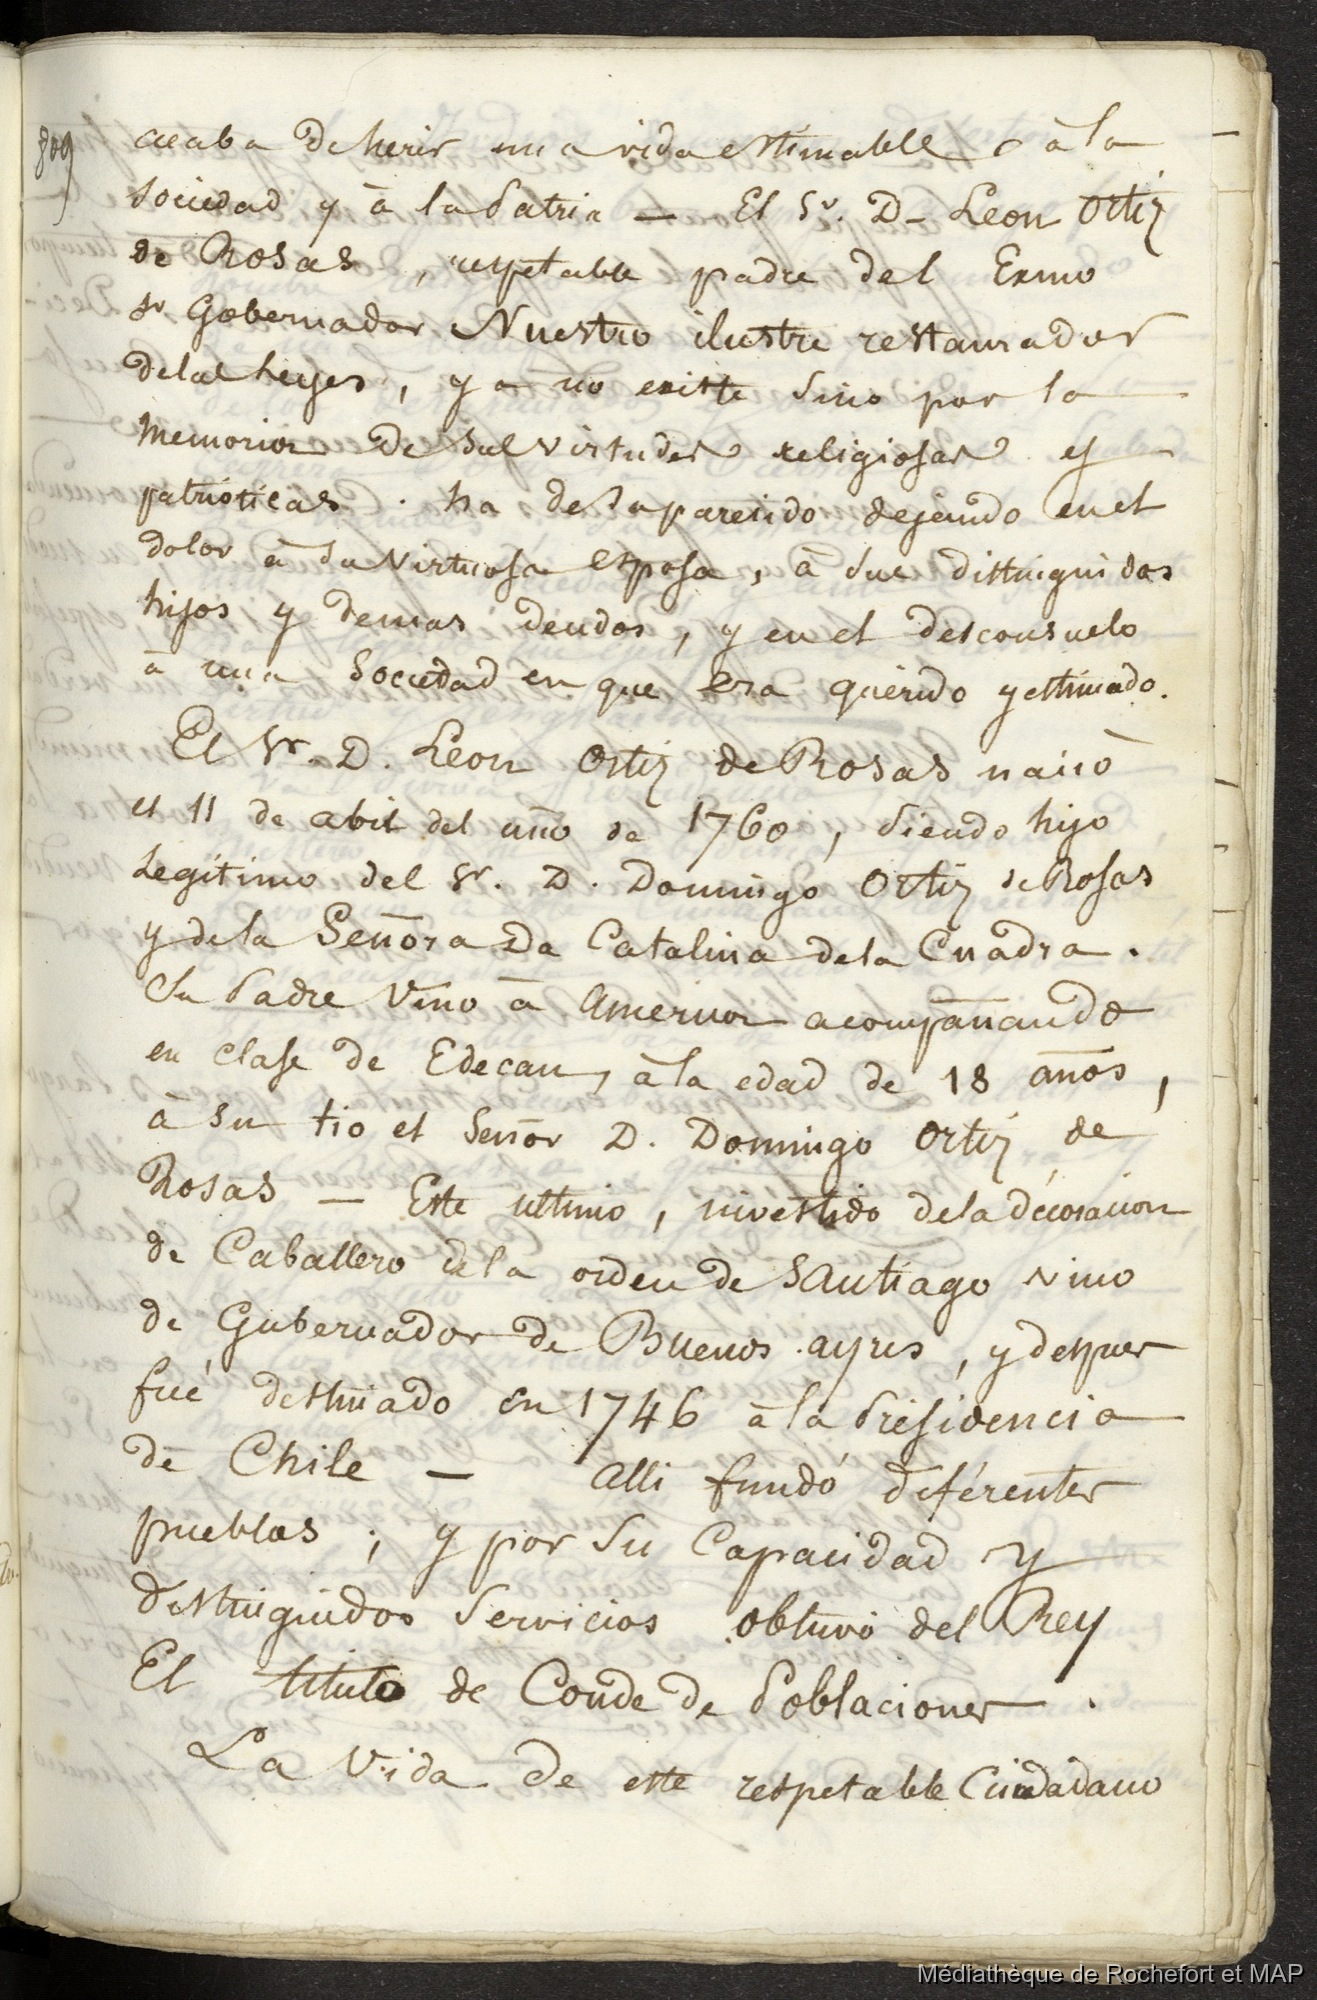 809
acaba de herir una vida estimable à la
Sociedad y à la Patria — El Sr. D- Leon Ortiz
de Rosas, respetable padre del Exmo
Sr Gobernador Nuestro ilustre restaurador
delas Leyes, ya no existe Sino por la
Memoria de Sus virtudes religiosas y
patrioticas. ha desaparecido dejando en el
dolor à Su virtuosa esposa, à Sus distinguidos
hijos y demas deudos, y en el desconsuelo
à una Sociedad en que era querido y estimado.
El Sr. D. Leon Ortiz de Rosas naciò
el 11 de abil del año de 1760, Siendo hijo
Legitimo del Sr. D. Domingo Ortiz de Rosas
y dela Señora Da Catalina dela Cuadra.
Su Padre Vino à America acompañando
en clase de Edecan, à la edad de 18 años,
à su tio el Señor D. Domingo Ortiz de
Rosas — Este ultimo, investido dela décoracion
de Caballero dela orden de Santiago vino
de Gubernador de Buenos ayres, y despues
fué destinado en 1746 à la Présidencia
de Chile — alli fundó diférentes
pueblos; y por Su Capacidad y
distinguidos Servicios obtuvó del Rey
El titulo de Conde de Poblaciones.
La Vida de este respetable Ciudadano
Médiathèque de Rochefort et MAP